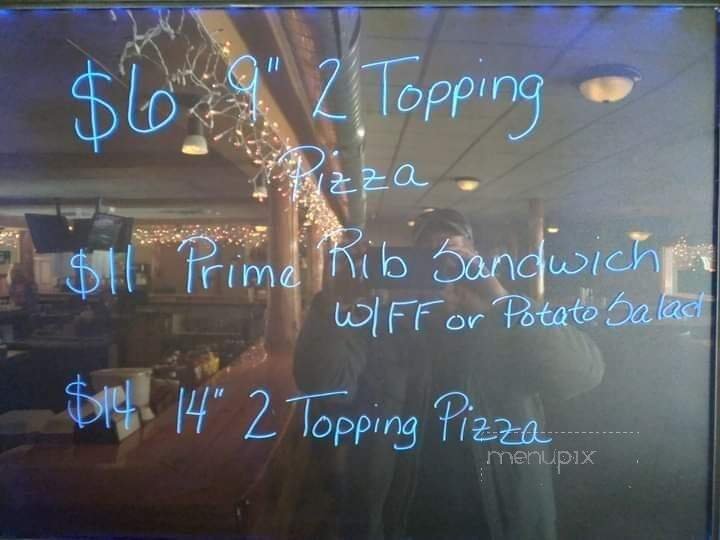 $6 9" 2 Topping
Pizza
$11 Prime Rib Sandwich
W/FF or Potato Salad
$14 14" 2 Topping Pizza
menupix